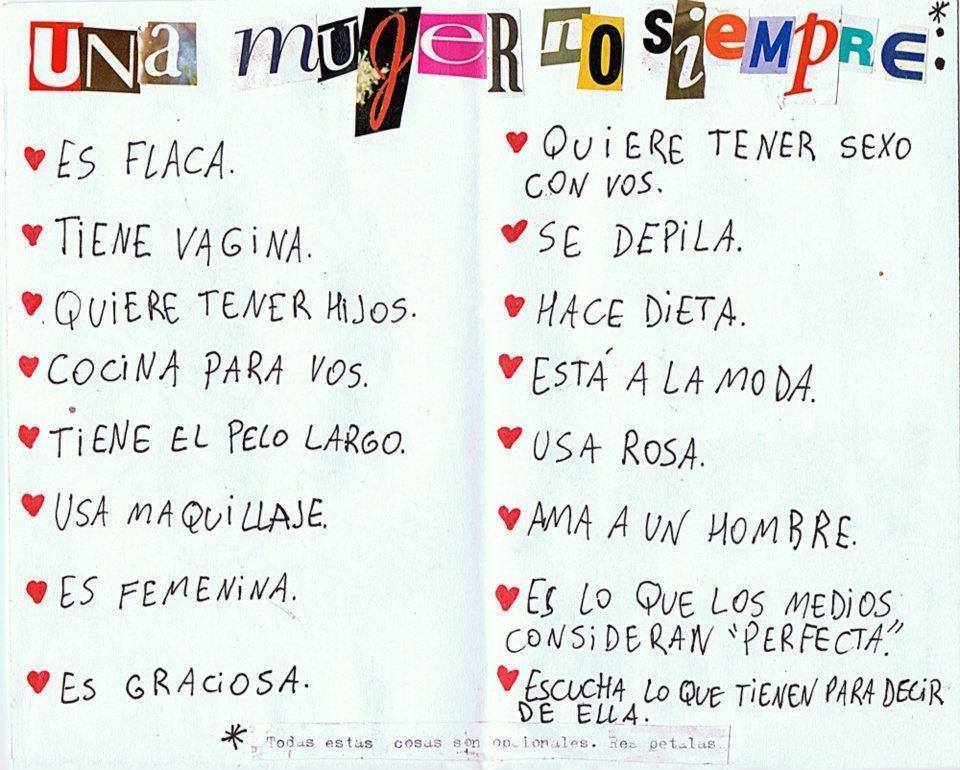 UNA mujeR no siEMpRE:*
ES FLACA.
TiENE VAGiNA.
QUiERE TENER HiJOS.
COCiNA PARA VOS.
TiENE EL PELO LARGO.
USA MAQUiLLAJE.
ES FEMENiNA.
ES GRACiOSA.
QUiERE TENER SEXO
CON VOS.
SE DEPiLA.
HACE DiETA.
ESTÁ A LA MODA.
USA ROSA.
AMA A UN HOMBRE.
ES LO QUE LOS MEDiOS
CONSiDERAN "PERFECTA."
ESCUCHA LO QUE TiENEN PARA DECiR
DE ELLA.
* Todas estas cosas son opcionales. Res petalas